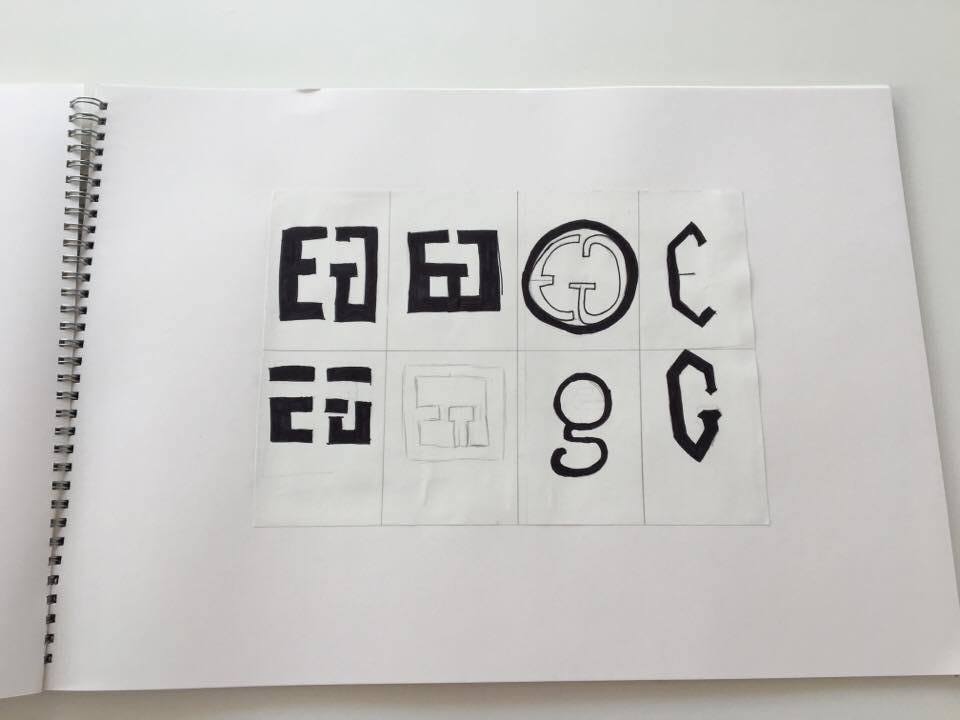 EG EG EG E
EG EG g G